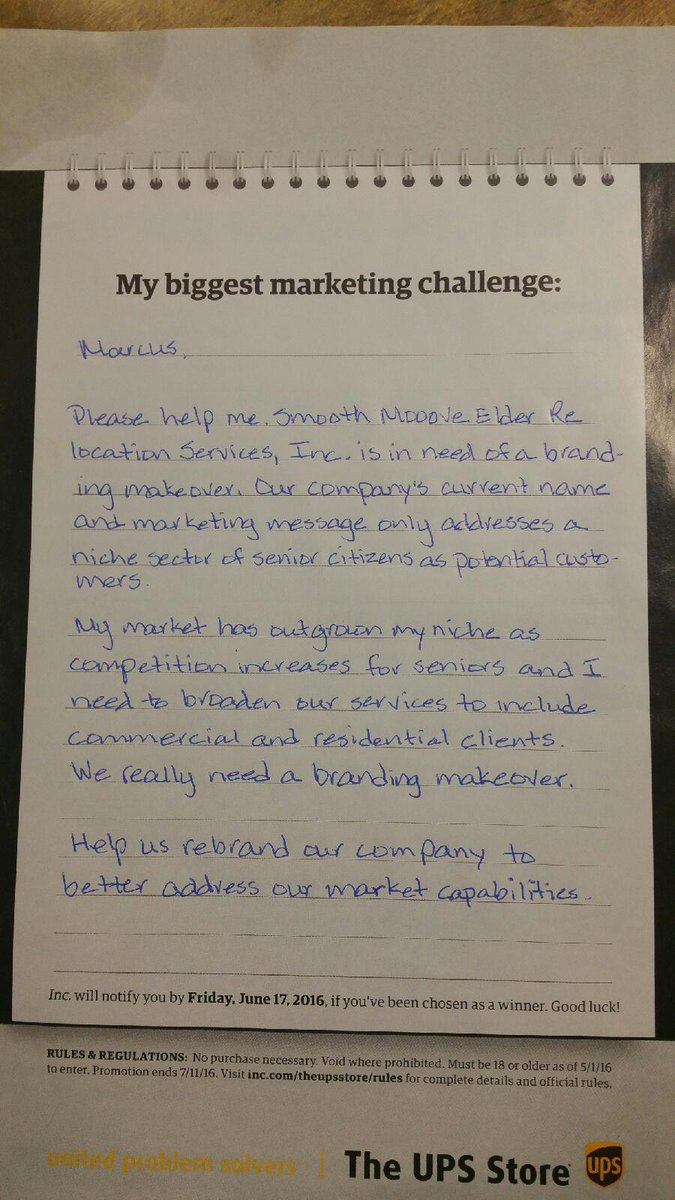 My biggest marketing challenge:
Marcus,
Please help me. Smooth Mooove Elder Re
location Services, Inc. is in need of a brand-
ing makeover. Our company's current name
and marketing message only addresses a
niche sector of senior citizens as potential custo-
mers.
My market has outgrown my niche as
competition increases for seniors and I
need to broaden our services to include
commercial and residential clients.
We really need a branding makeover.
Help us rebrand our company to
better address our market capabilities.
Inc. will notify you by Friday, June 17, 2016, if you've been chosen as a winner. Good luck!
RULES & REGULATIONS: No purchase necessary. Void where prohibited. Must be 18 or older as of 5/1/16
to enter. Promotion ends 7/11/16. Visit inc.com/theupsstore/rules for complete details and official rules.
united problem solvers™ | The UPS Store® ups